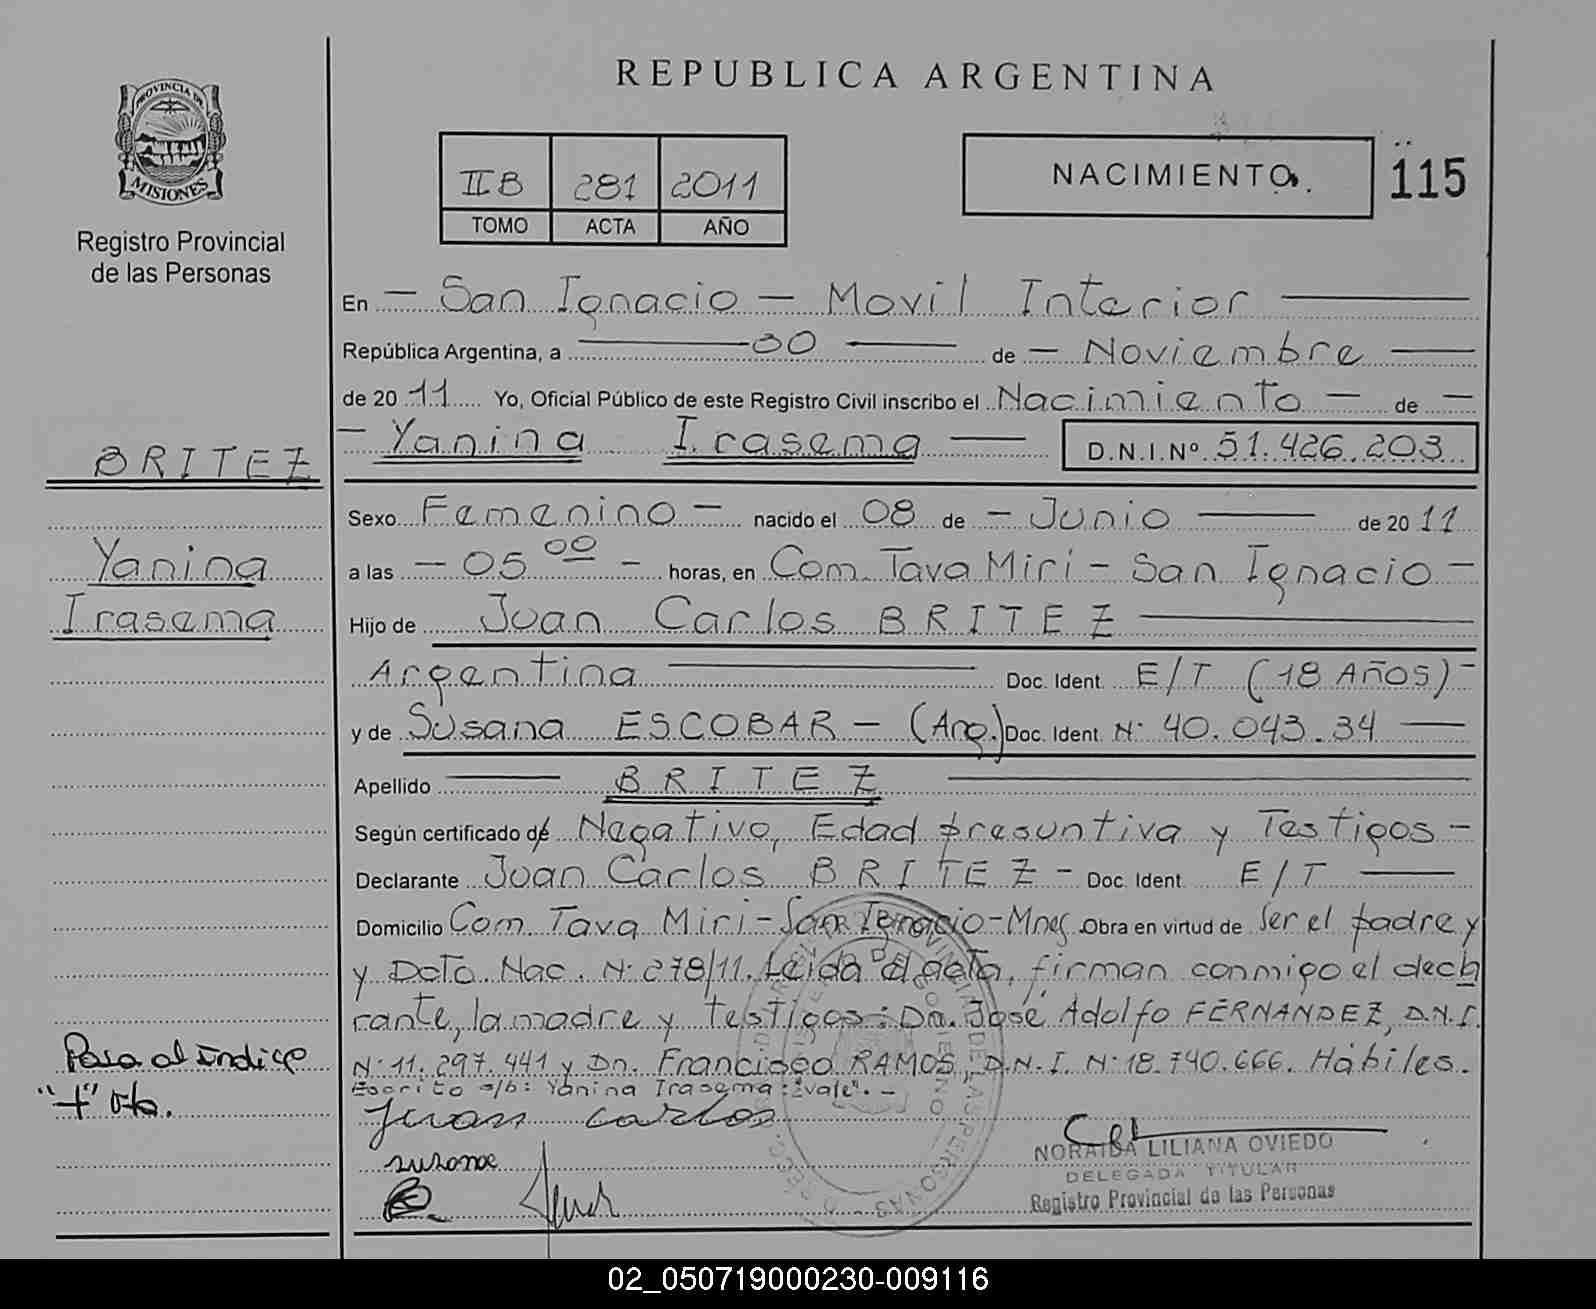 REPUBLICA ARGENTINA
PROVINCIA DE
MISIONES
Registro Provincial
de las Personas
IIB 281 2011
TOMO ACTA AÑO
NACIMIENTO.
115
En — San Ignacio — Movil Interior —
República Argentina, a — 30 — de — Noviembre —
de 20 11 Yo, Oficial Público de este Registro Civil inscribo el Nacimiento — de —
— Yanina Irasema — D.N.I.Nº 51.426.203
BRITEZ
Yanina
Irasema
Sexo Femenino — nacido el 08 de — Junio — de 20 11
a las — 05 00 — horas, en Com. Tava Miri — San Ignacio —
Hijo de Juan Carlos BRITEZ —
Argentina — Doc. Ident. E/T (18 Años) —
y de Susana ESCOBAR — (Arg.) Doc. Ident. N: 40.043.34 —
Apellido — BRITEZ —
Según certificado de Negativo, Edad presuntiva y Testigos —
Declarante Juan Carlos BRITEZ — Doc. Ident. E/T —
Domicilio Com. Tava Miri — San Ignacio — Mnes. Obra en virtud de Ser el padre y
y Dcto. Nac. N: 278/11. Leida el acta, firman conmigo el decla
rante, la madre y testigos: Dn. José Adolfo FERNANDEZ, D.N.I.
N: 11.297.441 y Dn. Francisco RAMOS, D.N.I. N: 18.740.666. Hábiles.
Escrito s/b: Yanina Irasema: "vale". —
Paso al Indice
Juan carlos
susana
NORAIBA LILIANA OVIEDO
DELEGADA TITULAR
Registro Provincial de las Personas
02_050719000230-009116